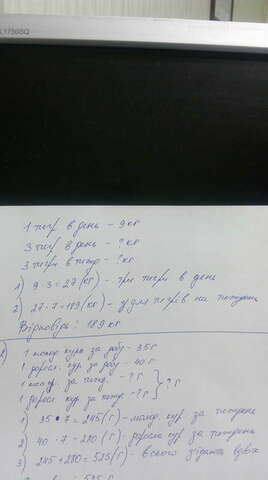 1 тигр в день – 9 кг
3 тигр в день – ? кг
3 тигри в тижд – ? кг
1) 9·3=27 (кг) – три тигри в день
2) 27·7=189 (кг) – тигрів на тиждень
Відповідь: 189 кг
2)
1 молод. курка за добу – 35 г
1 доросл. кур. за добу – 40 г
1 молод. за тижд. – ? г } ? г
1 доросл. кур за тижд – ? г
1) 35·7=245 (г) – молод. кур. за тиждень
2) 40·7=280 (г) доросла кур за тиждень
3) 245+280=525 (г) – всього з'їдять вдвох
525 г